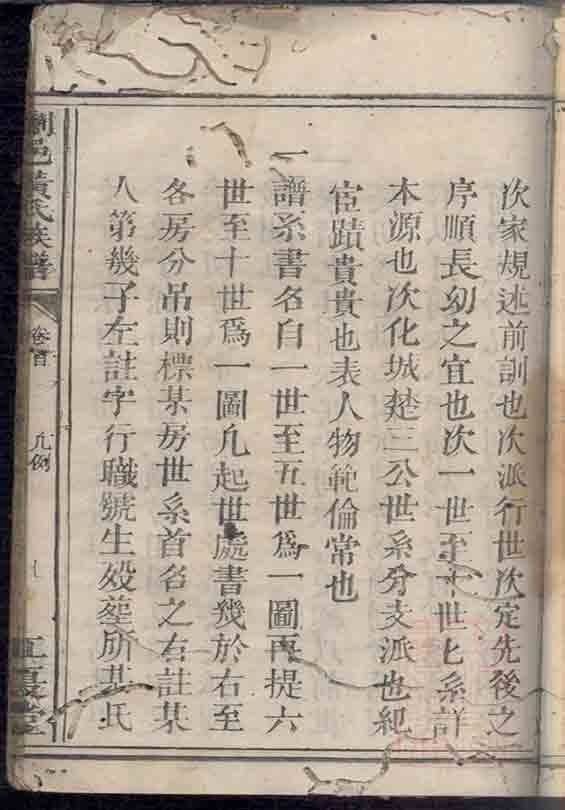 次家規述前訓也次派行世次定先後之
序順長幼之宜也次一世至十世匕系詳
本源也次化城楚三公世系分支派也紀
宦蹟貴貴也表人物範倫常也
一譜系書名自一世至五世爲一圖再提六
世至十世爲一圖凡起世處書幾於右至
各房分吊則標某房世系首名之右註某
人第幾子左註字行職號生殁塟所其氏
邑黃氏族譜
卷首
凡例